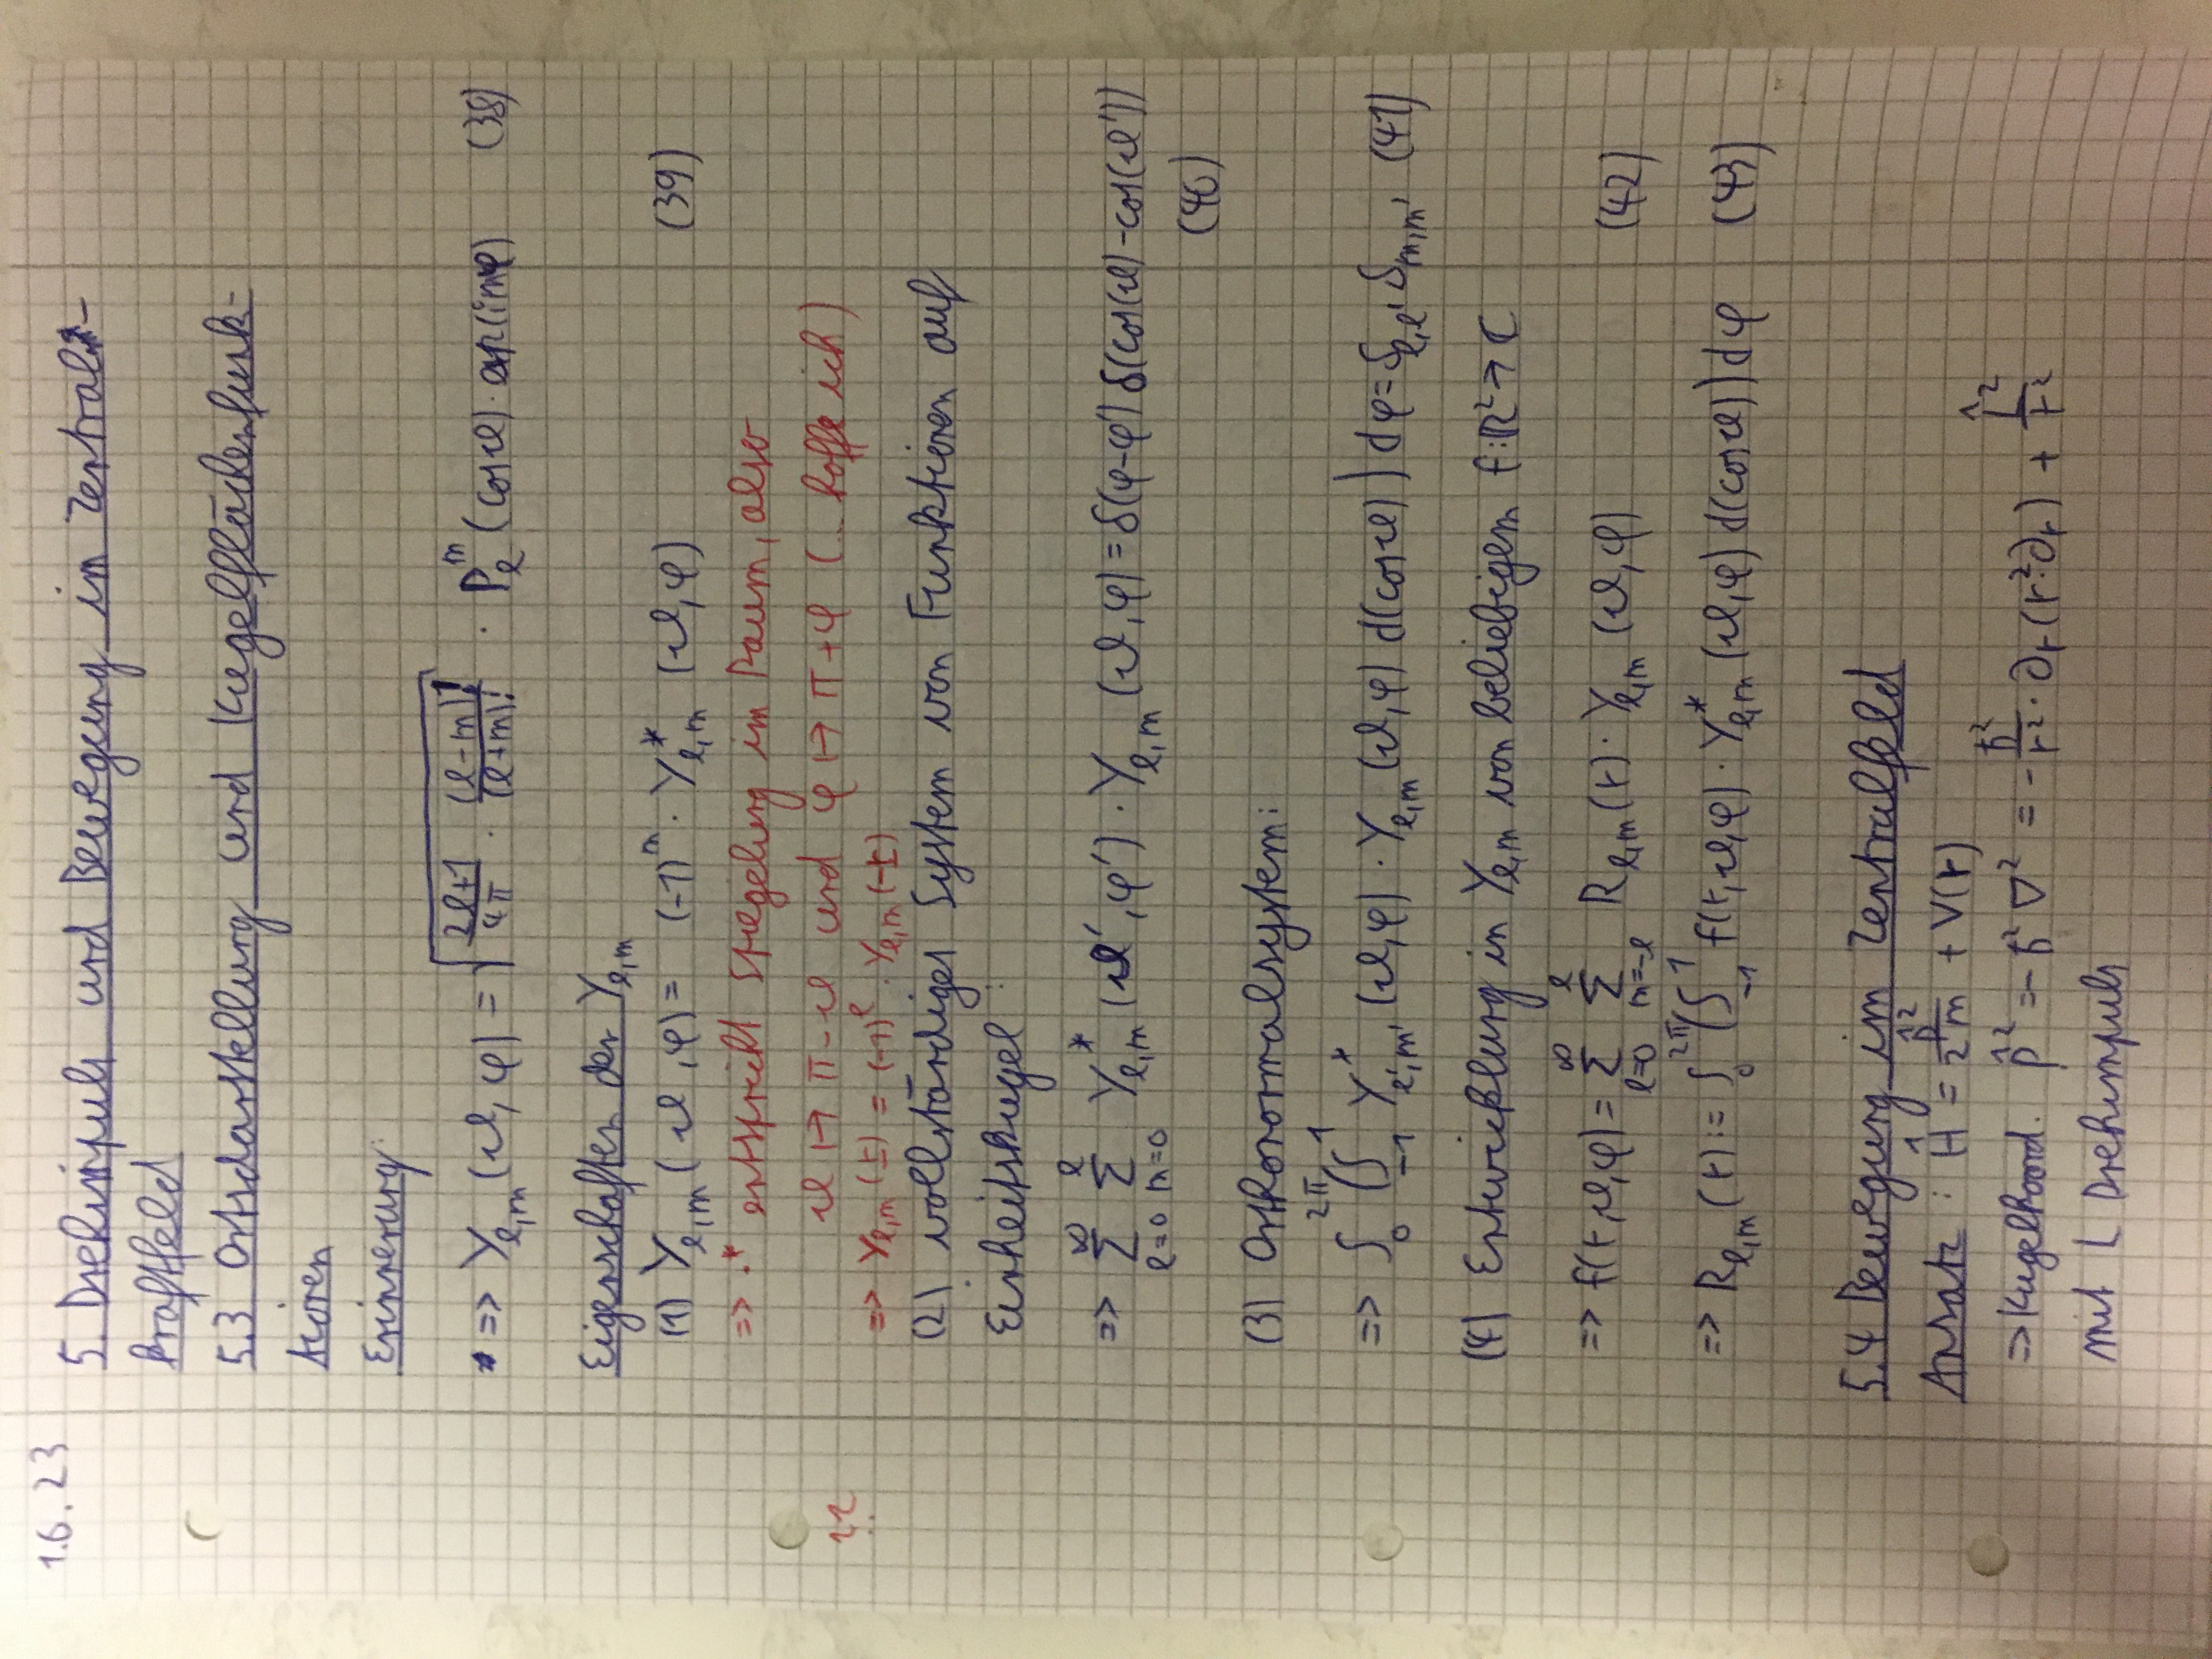 1.6.23
5. Drehimpuls und Bewegung im Zentral-
kraftfeld
5.3 Ortsdarstellung und Kugelflächenfunk-
tionen
Erinnerung:
=> Y_{l,m}(ϑ,φ) = √(\frac{2l+1}{4π} · \frac{(l-m)!}{(l+m)!}) · P_l^m(cosϑ) · exp(imφ) (38)
Eigenschaften der Y_{l,m}
(1) Y_{l,m}(ϑ,φ) = (-1)^m · Y*_{l,m}(ϑ,φ) (39)
=> ·* entspricht Spiegelung im Raum, also
ϑ ↦ π-ϑ und φ ↦ π+φ (... hoffe ich)
??
=> Y_{l,m}(r) = (-1)^l · Y_{l,m}(-r)
(2) vollständiges System von Funktionen auf
Einheitskugel:
=> Σ_{l=0}^{∞} Σ_{m=0}^{l} Y*_{l,m}(ϑ',φ') · Y_{l,m}(ϑ,φ) = δ(φ-φ') δ(cos(ϑ)-cos(ϑ'))
(40)
(3) Orthonormalsystem:
=> ∫_0^{2π} (∫_{-1}^{1} Y*_{l',m'}(ϑ,φ) · Y_{l,m}(ϑ,φ) d(cosϑ)) dφ = δ_{l,l'} δ_{m,m'} (41)
(4) Entwicklung in Y_{l,m} von beliebigem f:ℝ²→ℂ
=> f(r,ϑ,φ) = Σ_{l=0}^{∞} Σ_{m=-l}^{l} R_{l,m}(r) · Y_{l,m}(ϑ,φ) (42)
=> R_{l,m}(r) := ∫_0^{2π} (∫_{-1}^{1} f(r,ϑ,φ) · Y*_{l,m}(ϑ,φ) d(cosϑ)) dφ (43)
5.4 Bewegung im Zentralfeld
Ansatz: Ĥ = \frac{p̂²}{2m} + V(r)
=> Kugelkoord. p̂² = -ħ² ∇² = -\frac{ħ²}{r²} · ∂_r(r²·∂_r) + \frac{L̂²}{r²}
mit L Drehimpuls